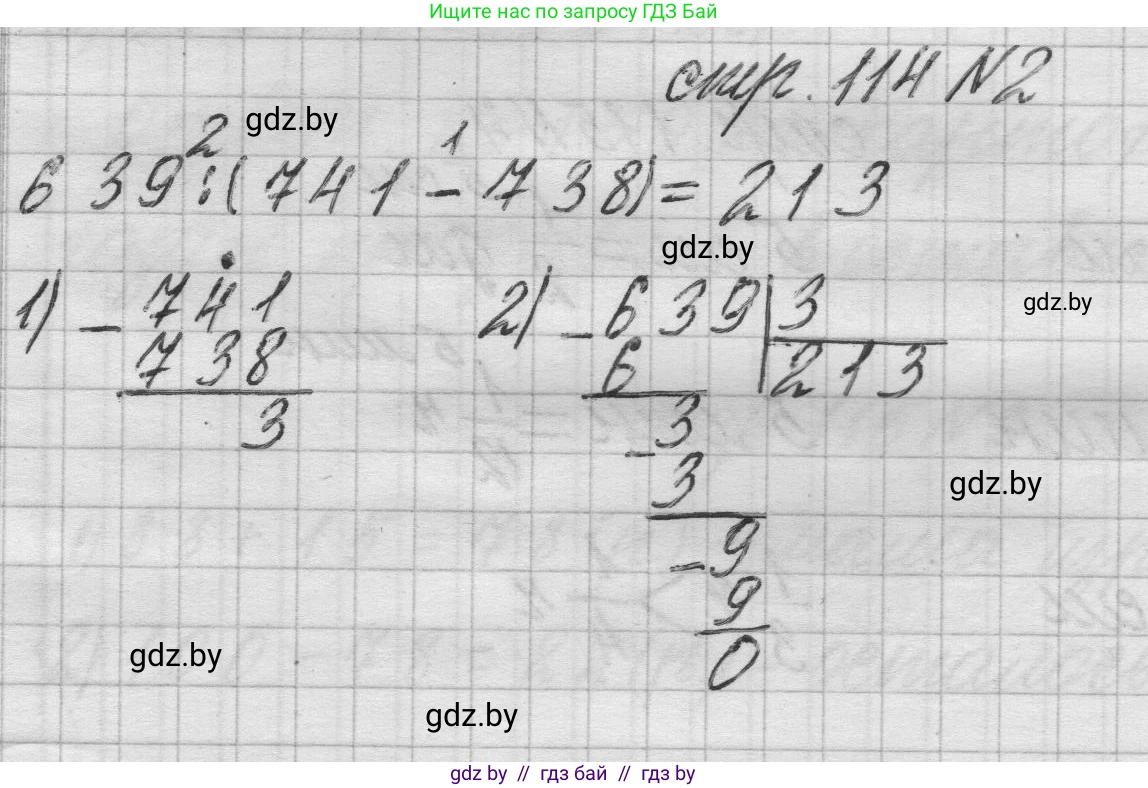 Ищите нас по запросу ГДЗ Бай
стр. 114 N2
gdz.by
2 1
639:(741-738)=213
gdz.by
1) - 741 2) - 639 | 3
gdz.by
738 6 213
3 - 3
3
gdz.by
- 9
9
0
gdz.by
gdz.by
gdz by // гдз бай // гдз by